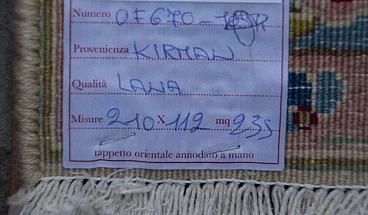 Numero OF670-
Provenienza KIRMAN
Qualità LANA
Misure 210 X 112 mq 2,35
tappetto orientale annodato a mano